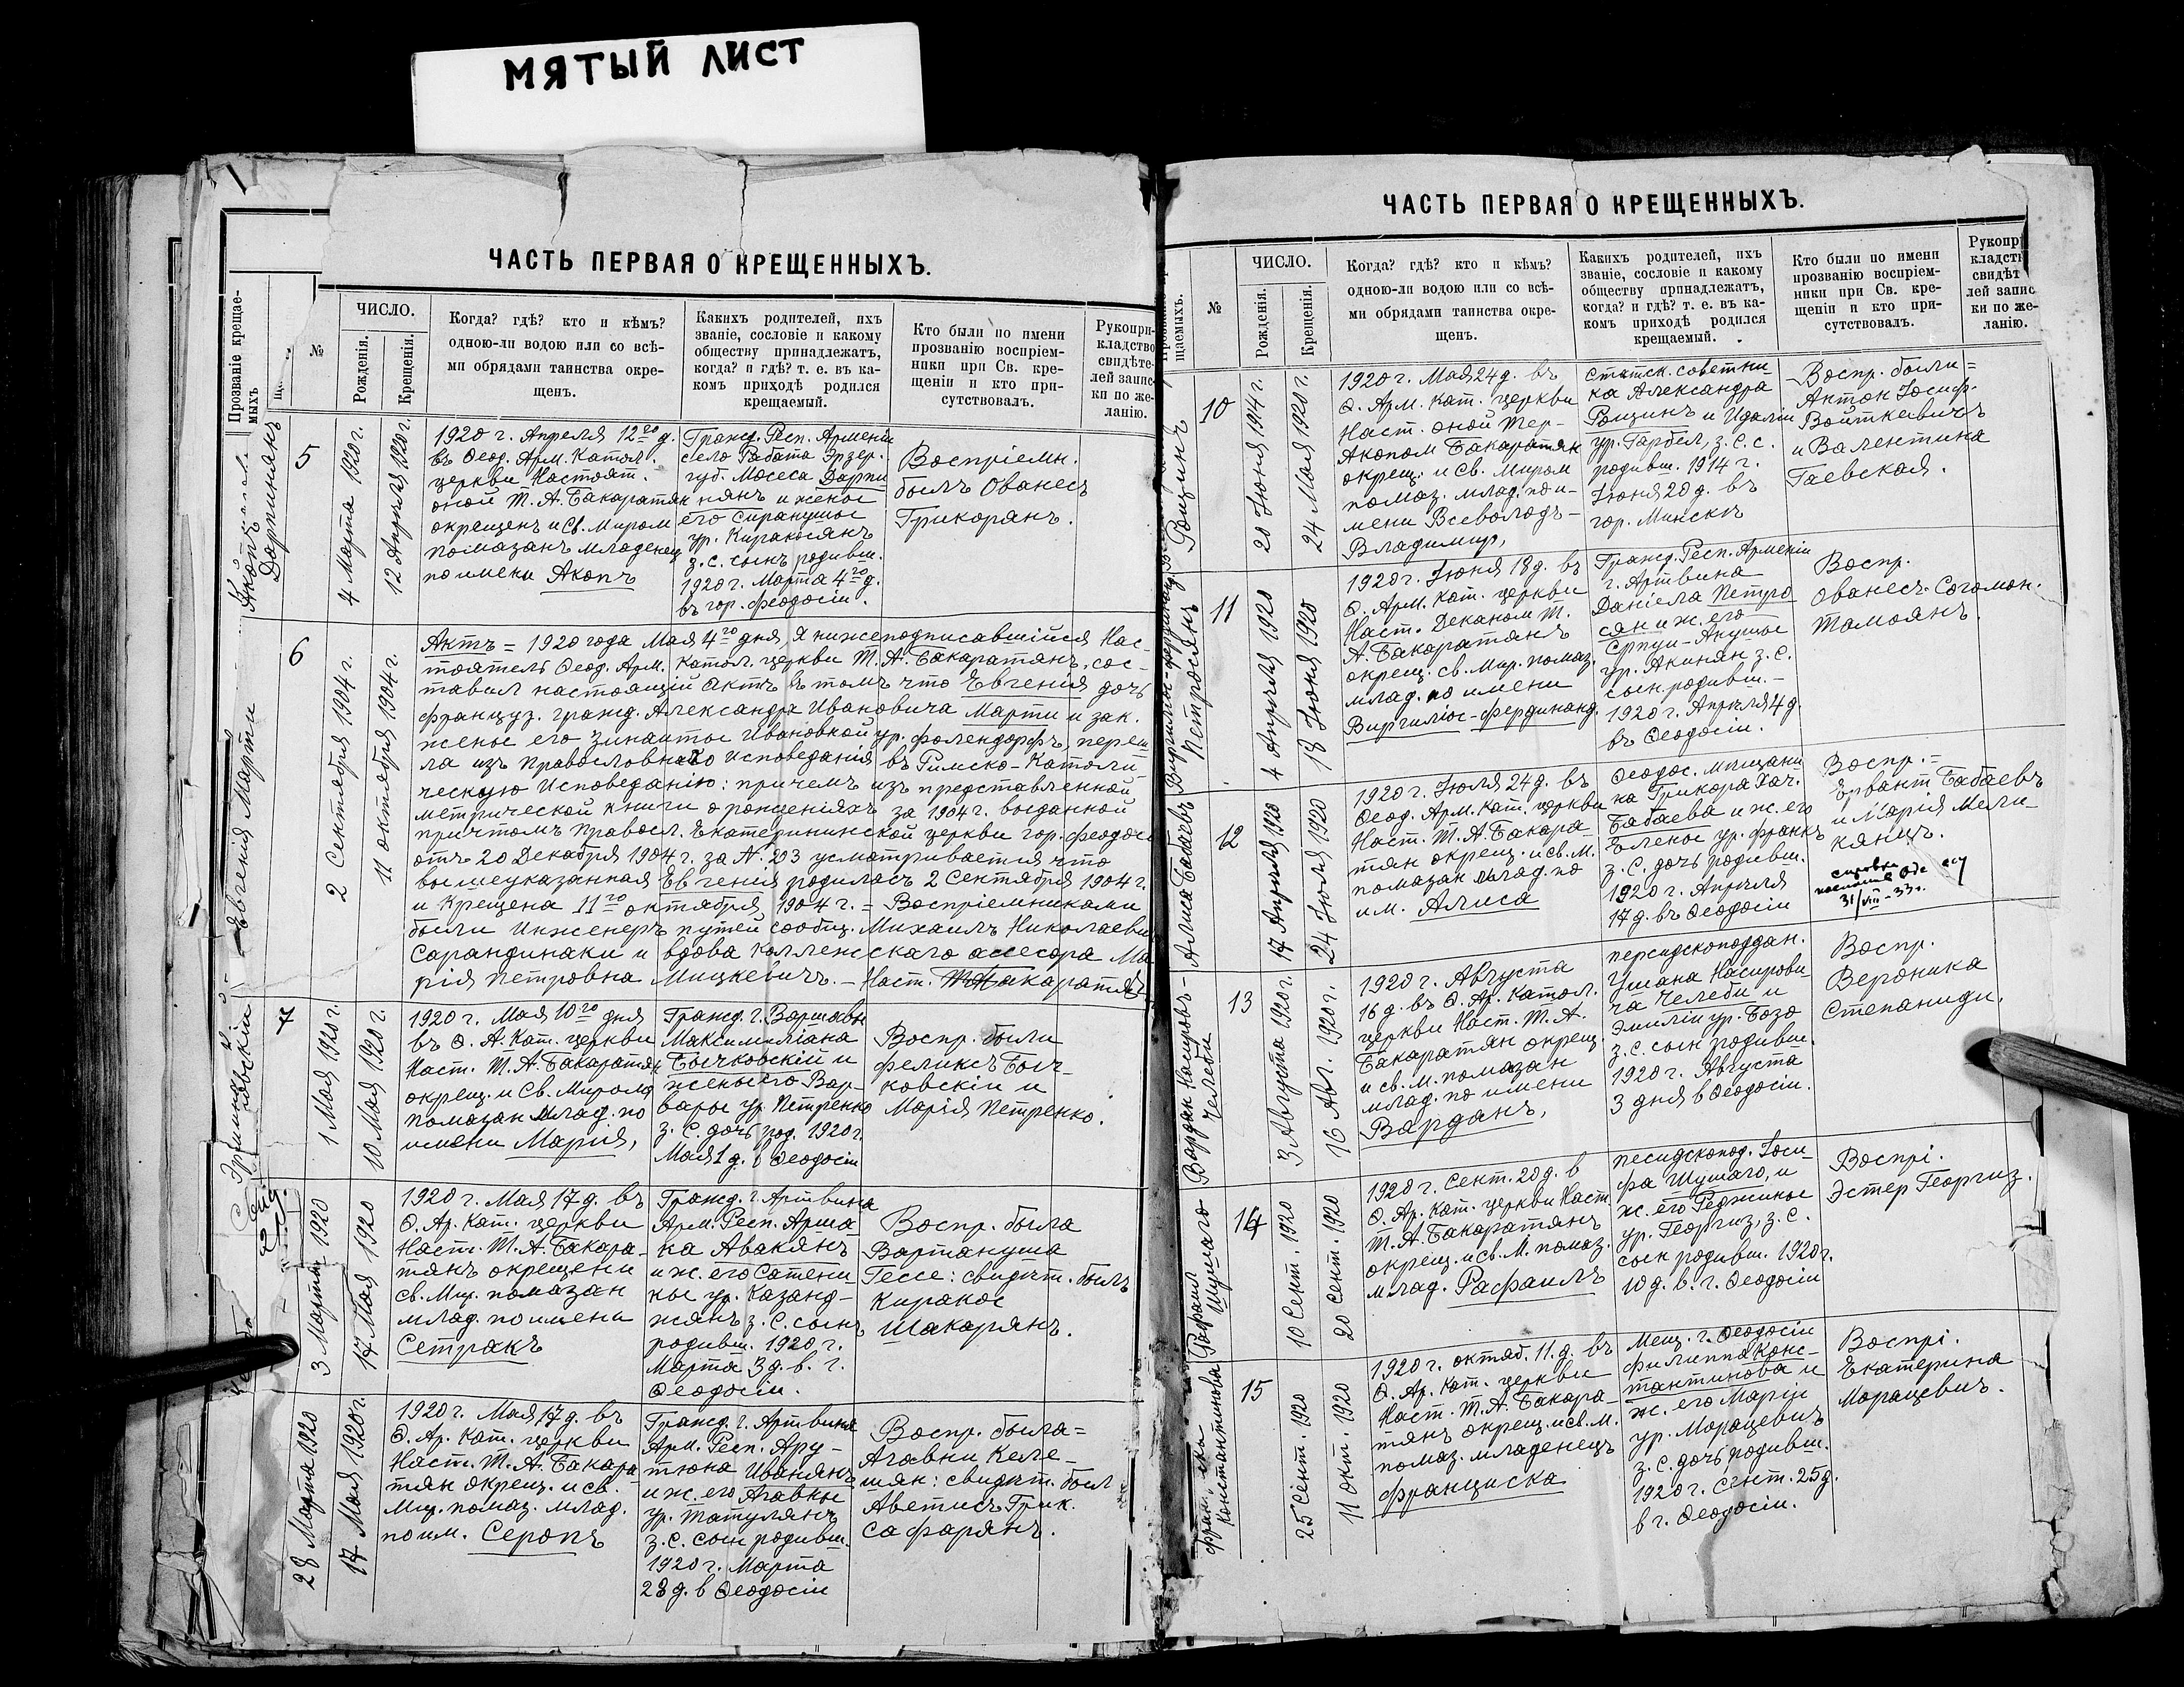 МЯТЫЙ ЛИСТ
ЧАСТЬ ПЕРВАЯ О КРЕЩЕННЫХЪ.
Прозваніе крещае-
мыхъ
№
ЧИСЛО.
Рожденія.
Крещенія.
Когда? гдѣ? кто и кѣмъ?
одною-ли водою или со всѣ-
ми обрядами таинства окре-
щенъ.
Какихъ родителей, ихъ
званіе, сословіе и какому
обществу принадлежатъ,
когда? и гдѣ? т. е. въ ка-
комъ приходѣ родился
крещаемый.
Кто были по имени
прозванію воспріем-
ники при Св. кре-
щеніи и кто при-
сутствовалъ.
Рукопри-
кладство
свидѣте-
лей запис-
ки по же-
ланію.
Акопъ
Дарпинянъ
5
4 Марта 1920г.
12 Апрѣля 1920г.
1920 г. Апреля 12го д.
въ Ѳеод. Арм. Катол.
церкви Настоят.
оной Т. А. Бакаратян
окрещенъ и Св. Миром
помазанъ младенец
по имени Акопъ
Гражд. Респ. Арменіи
село Рабата Эрзер.
губ. Мосеса Дарпи
нянъ и жены
его Сирануши
ур. Киракосянъ
з. с. сынъ родивш.
1920 г. Марта 4го д.
въ гор. Феодосіи.
Воспріемн.
былъ Ованесъ
Григорянъ.
Евгенія Марти
6
2 Сентября 1904 г.
11 октября 1904 г.
Актъ = 1920 года Мая 4го дня, я нижеподписавшійся Нас-
тоятель Ѳеод. Арм. Катол. церкви Т. А. Бакаратянъ, сос-
тавил настоящій Актъ въ томъ что Евгенія дочь
француз. гражд. Александра Ивановича Марти и зак.
жены его Зинаиты Ивановной ур. Фолендорфъ, переш
ла изъ Православнаго Исповеданія въ Римско-Католи-
ческую Исповеданію: причемъ изъ представленной
метрической книги о рожденіяхъ за 1904 г. выданной
причтомъ Правосл. Екатерининской церкви гор. Феодос
отъ 20 Декабря 1904 г. за №. 203 усматривается что
вышеуказанная Евгенія родилась 2 Сентября 1904 г.
и крещена 11го октября 1904 г. = Воспріемниками
были Инженеръ путей сообщ. Михаилъ Николаеви
Сарандинаки и вдова Коллежскаго ассесора Ма
рія Петровна Мицкевичъ. - Наст. Т. А. Бакаратянъ
7
1 Мая 1920г.
10 Мая 1920 г.
1920 г. Мая 10го дня
въ Ѳ. А. Кат. церкви
Наст. Т. А. Бакаратян
окрещ. и Св. Миромъ
помазан млад. по
имени Марія,
Гражд. г. Варшавы
Максимиліана
Бычковскій и
жены его Вар-
вары ур. Петренко
з. С. дочь род. 1920г.
Мая 1 д. в Ѳеодосіи
Воспр. были
Феликсъ Быч-
ковскіи и
Марія Петренко.
3 Марта 1920
17 Мая 1920
1920 г. Мая 17 д. въ
Ѳ. Ар. Кат. церкви
Наст. Т. А. Бакара-
тянъ окрещени
св. Мир. помазан
млад. по имени
Сетракъ
Гражд. г. Артвина
Арм. Респ. Арша
ка Авакянъ
и ж. его Сатени-
ны ур. Казанд-
жянъ з. С. сынъ
родивш. 1920 г.
Марта 3 д. в. г.
Ѳеодосіи.
Воспр. была
Вартануша
Гессе: свидѣт. былъ
Киракос
Шакарянъ.
28 Марта 1920
17 Мая 1920г.
1920 г. Мая 17 д. въ
Ѳ. Ар. Кат. церкви
Наст. Т. А. Бакара
тян окрещ. и св.
Мир. помаз. млад.
по им. Серопъ
Гражд. г. Артвина
Арм. Респ. Ару-
тюна Иванянъ
и ж. его Агавны
ур. Татулянъ
з. С. сын родивш.
1920 г. Марта
28 д. в Ѳеодосіи
Воспр. была =
Агавни Келе-
шян: свидѣт. был
Аветисъ Грик.
Сафарянъ.
ЧАСТЬ ПЕРВАЯ О КРЕЩЕННЫХЪ.
щаемыхъ.
№
ЧИСЛО.
Рожденія.
Крещенія.
Когда? гдѣ? кто и кѣмъ?
одною-ли водою или со всѣ-
ми обрядами таинства окре-
щенъ.
Какихъ родителей, ихъ
званіе, сословіе и какому
обществу принадлежатъ,
когда? и гдѣ? т. е. въ ка-
комъ приходѣ родился
крещаемый.
Кто были по имени
прозванію воспріем-
ники при Св. кре-
щеніи и кто при-
сутствовалъ.
Рукопр
кладст
свидѣт
лей запис
ки по же-
ланію.
Рощинъ
10
20 Іюня 1914 г.
24 Мая 1920 г.
1920 г. Мая 24 д. въ
Ѳ. Арм. Кат. церкви
Наст. оной Тер-
Акопом Бакаратян
окрещ. и Св. Миром
помаз. млад. по и-
мени Всеволодъ-
Владимир,
Статск. советни
ка Александра
Рощинъ и Идаліи
ур. Гарбел, з. С. с.
родивш. 1914 г.
Іюня 20 д. въ
гор. Минскѣ
Воспр. были =
Антон Іосиф.
Войткевичъ
и Валентина
Гаевская.
Виргиліос-Фердинанд
Петросянъ
11
4 Апрѣля 1920
18 Іюня 1920
1920 г. Іюня 18 д. въ
Ѳ. Арм. Кат. церкви
Наст. Деканом Т.
А. Бакаратянъ
окрещ. св. Мир. помаз.
млад. по имени
Виргиліос-Фердинанд.
Гражд. Респ. Арменіи
г. Артвина
Даніела Петро
сян и ж. его
Српуи-Анушы
ур. Акинян з. С.
сын. родивш. -
1920 г. Апрѣля 4 д.
въ Ѳеодосіи.
Воспр.
Ованесъ Согомон.
Томоянъ.
Алиса Бабаевъ
12
17 Апрѣля 1920
24 Іюля 1920
1920 г. Іюля 24 д. въ
Ѳеод. Арм. Кат. церкви
Наст. Т. А. Бакара-
тян окрещ. и св. М.
помазан млад. по
им. Алиса
Ѳеодос. Мѣщани
на Грикора Хач.
Бабаева и ж. его
Елены ур. Франкъ
з. С. дочь родивш.
1920 г. Апрѣля
17 д. въ Ѳеодосіи
Воспр. =
Ервант Бабаевъ
и Марія Мели-
кянцъ.
справка
31/VIII-33г.
Вардан Насировъ-
Челеби
13
3 Августа 1920г.
16 Авг. 1920 г.
1920 г. Августа
16 д. въ Ѳ. Ар. Катол.
церкви Наст. Т. А.
Бакаратян окрещ.
и св. М. помазан
млад. по имени
Варданъ,
персидскоподдан.
Ушана Насирови
ча Челеби и
Эмиліи ур. Бозо
з. С. сын родивш.
1920 г. Августа
3 дня в Ѳеодосіи.
Воспр.
Вероника
Степаниди,
Рафаил
Шумаго
14
10 Сент. 1920
20 Сент. 1920
1920 г. Сент. 20 д. в
Ѳ. Ар. Кат. церкви Наст.
Т. А. Бакаратянъ
окрещ. и св. М. помаз.
млад. Рафаилъ
песидскопод. Іоси-
фа Шумаго, и
ж. его Реджины
ур. Георгиз, з. С.
сын родивш. 1920 г.
10 д. в. г. Ѳеодосіи
Воспрі.
Эстер Георгиз.
Константинова
15
25 Сент. 1920
11 окт. 1920
1920 г. октяб. 11. д. въ
Ѳ. Ар. Кат. церкви
Наст. Т. А. Бакара-
тянъ окрещ. и св. М.
помаз. младенецъ
Франциска
Мещ. г. Ѳеодосіи
Филиппа Конс-
тантинова и
ж. его Маріи
ур. Морацевич
з. С. дочь родивш.
1920 г. Сент. 25 д.
в г. Ѳеодосіи.
Воспрі.
Екатерина
Морацевич.